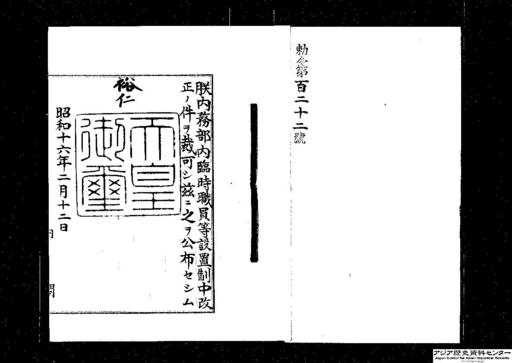 勅令第百二十二號
朕内務部内臨時職員等設置制中改
正ノ件ヲ裁可シ茲ニ之ヲ公布セシム
裕仁
天皇御璽
昭和十六年二月十二日
内閣
アジア歴史資料センター
Japan Center for Asian Historical Records